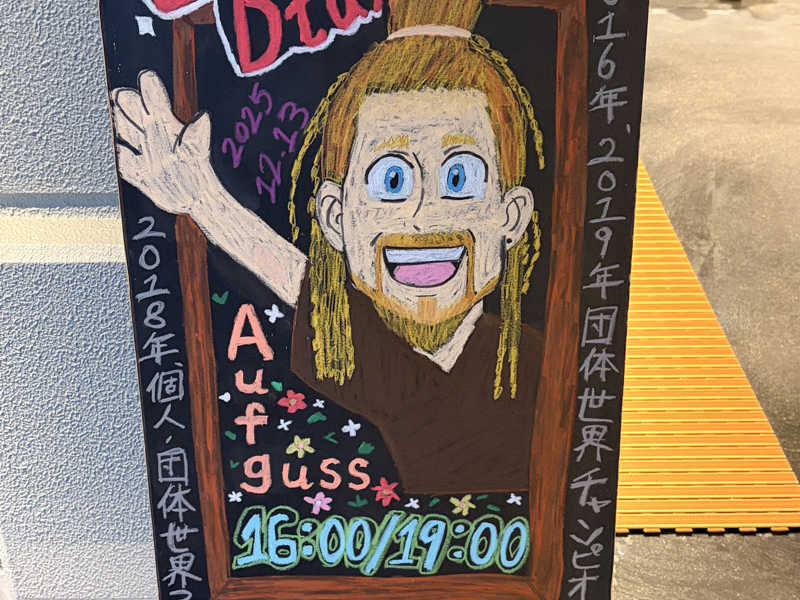 2025
12.13
Aufguss
16:00/19:00
2018年、個人・団体世界
016年、2019年団体世界チャンピオ